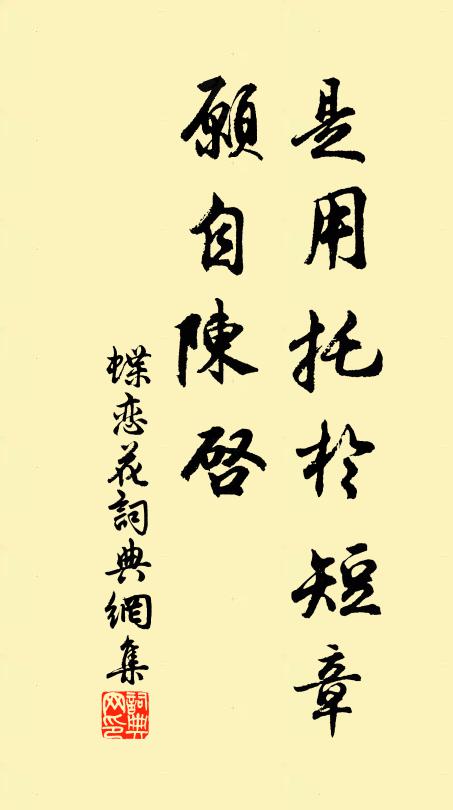 是用托於短章
願自陳啓
蝶恋花詞典網集
詞典网印